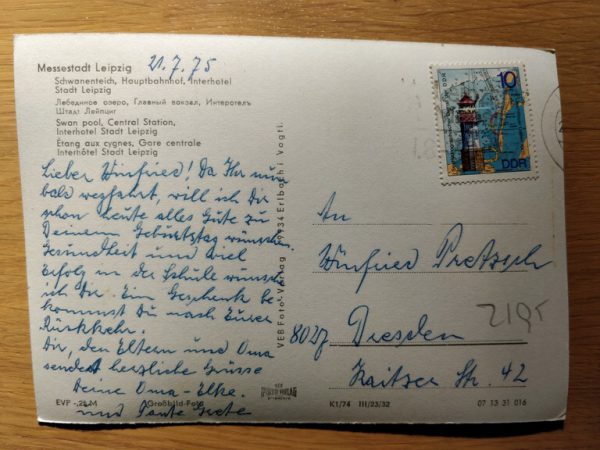 Messestadt Leipzig 21.7.75
Schwanenteich, Hauptbahnhof, Interhotel
Stadt Leipzig
Лебединое озеро, Главный вокзал, Интеротель
Штадт Лейпциг
Swan pool, Central Station,
Interhotel Stadt Leipzig
Étang aux cygnes, Gare centrale
Interhôtel Stadt Leipzig
Lieber Winfried! Da Ihr nun
bald wegfahrt, will ich Dir
schon heute alles Gute zu
Deinem Geburtstag wünschen.
Gesundheit und viel
Erfolg in der Schule wünsch
ich Dir. Ein Geschenk be-
kommst Du nach Eurer
Rückkehr.
Dir, den Eltern und Oma
sendet herzliche Grüsse
Deine Oma-Elke.
und Tante Grete
EVP -,25 M
Großbild-Foto
VEB Foto-Verlag 9934 Erlbach i. Vogtl.
10
DDR
An
Winfried Pretzsch
8027 Dresden
Kaitzer Str. 42
K1/74 III/23/32
07 13 31 016